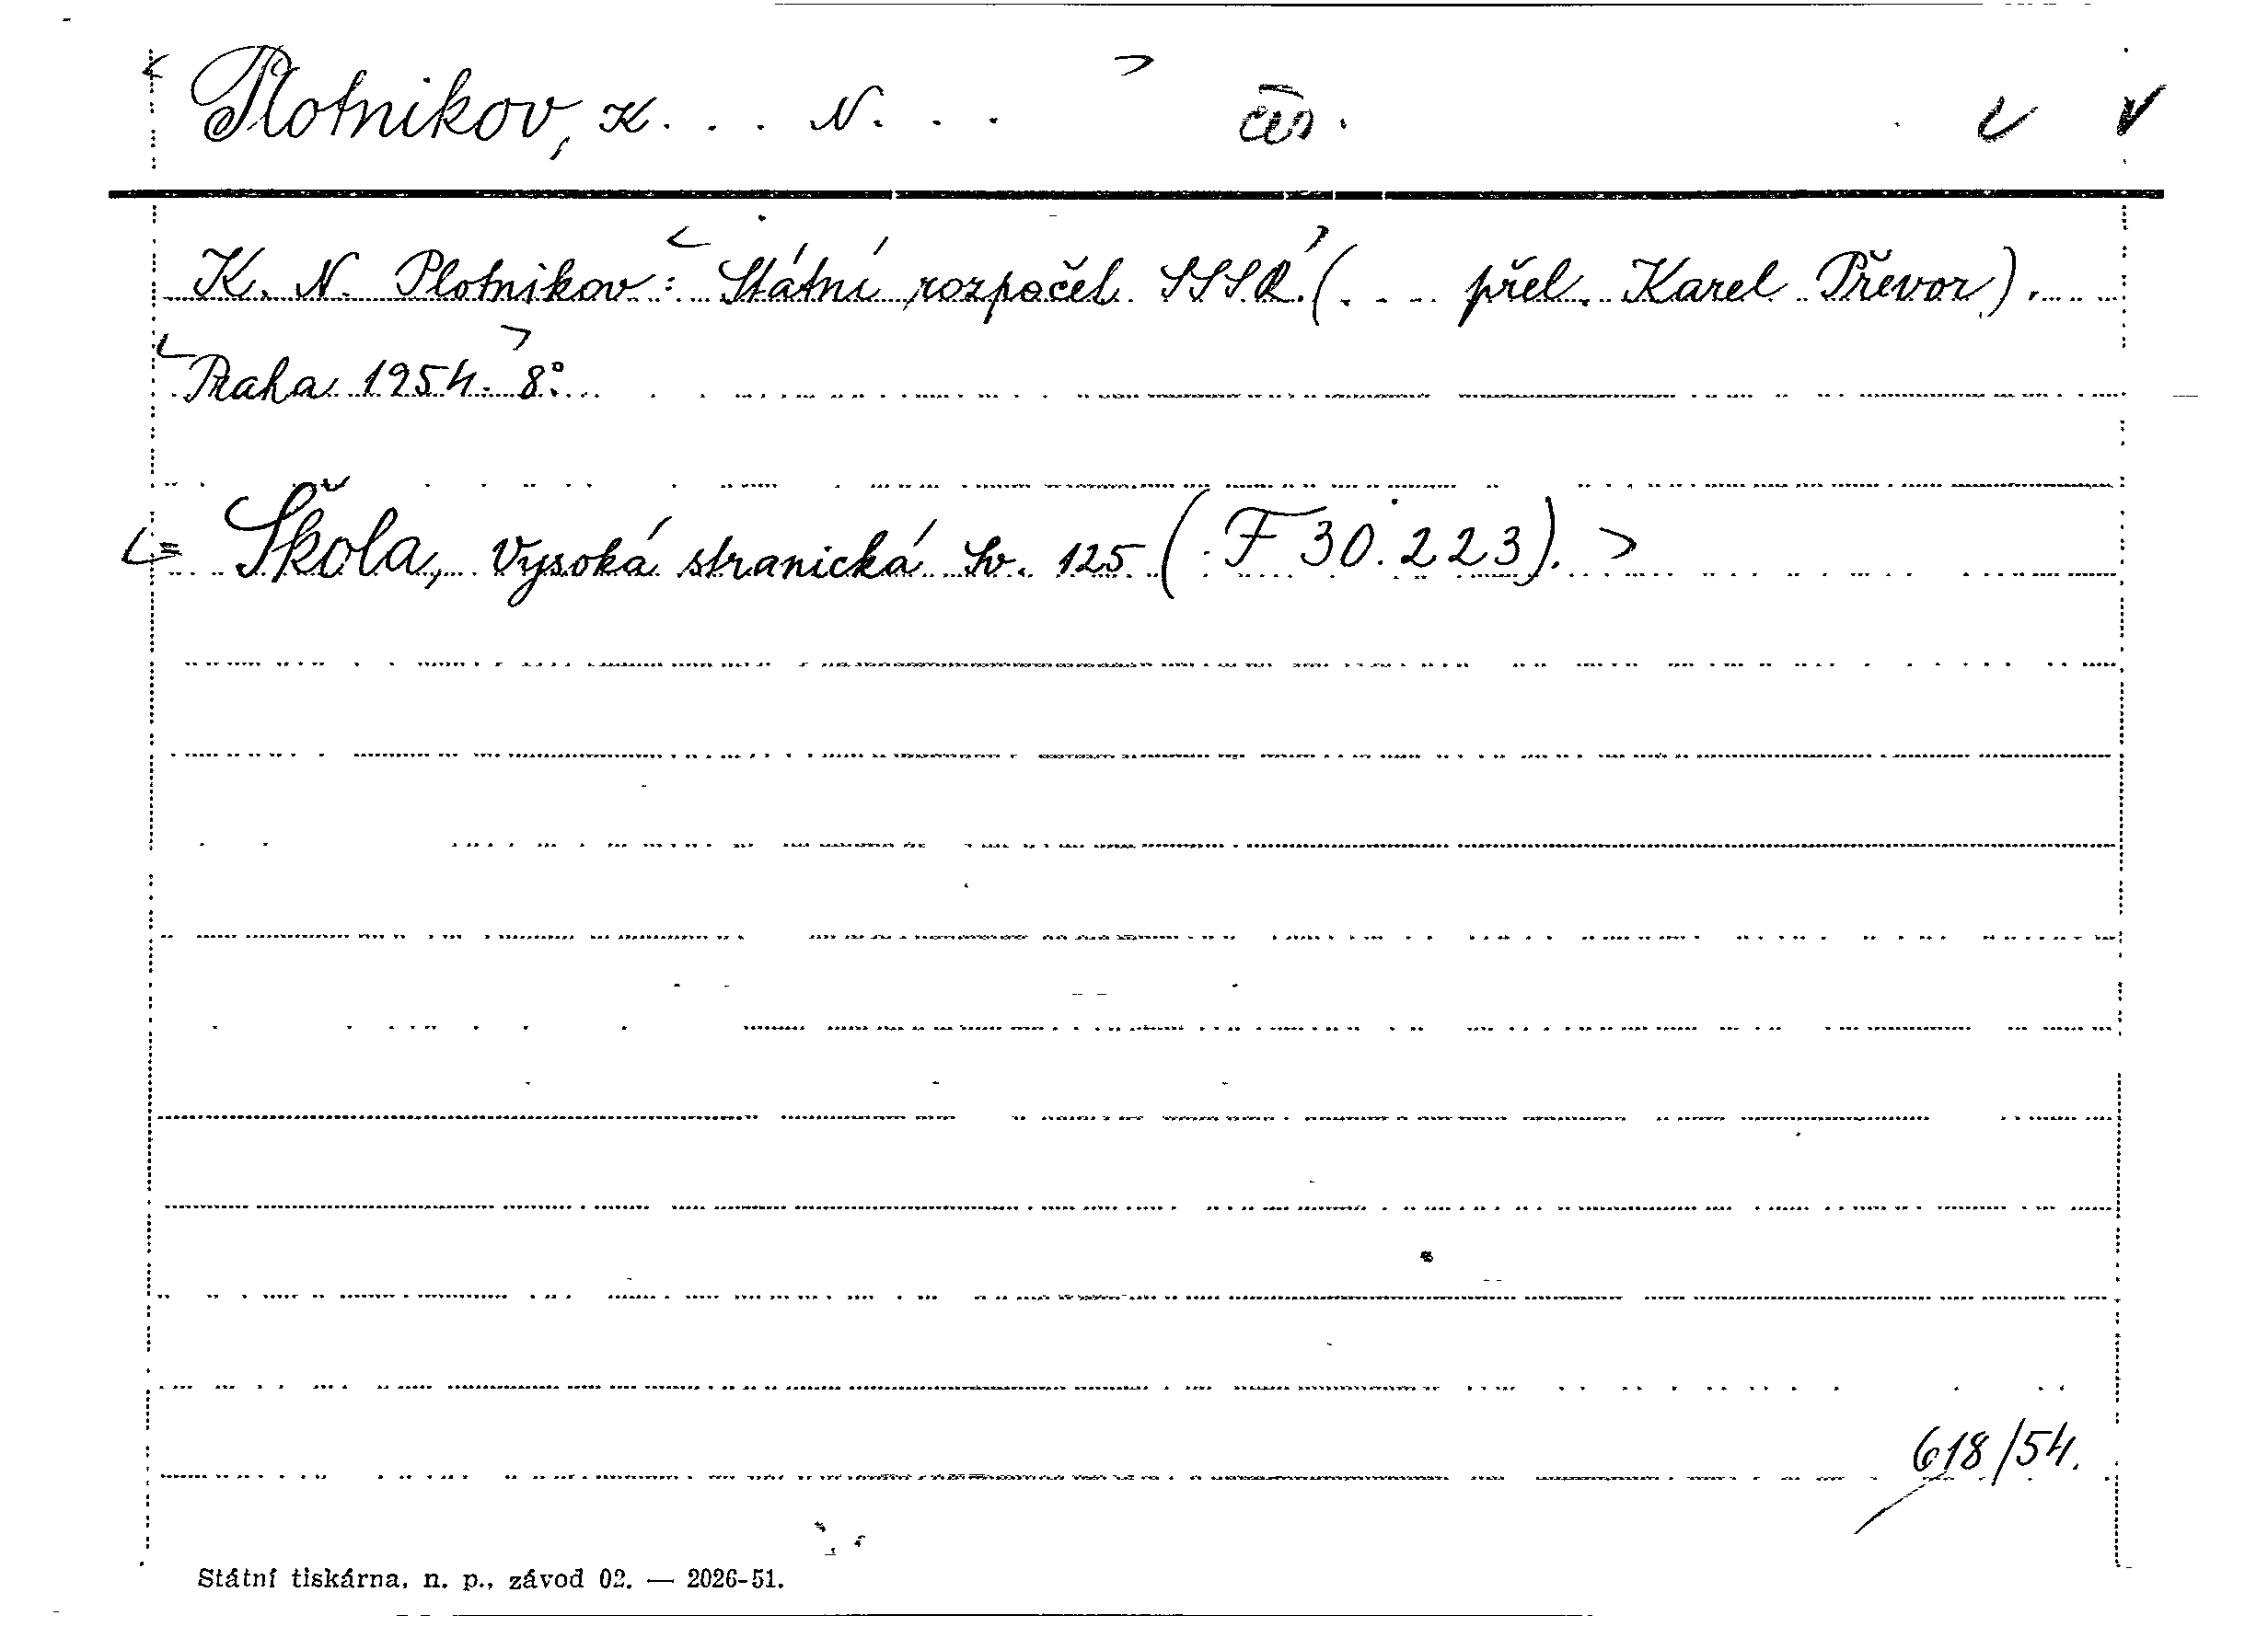 < Plotnikov, K... N... > čes.
K. N. Plotnikov: < Státní rozpočet SSSR > (... přel. Karel Převor).
< Praha 1954. > 8°.
<= Škola, Vysoká stranická Sv. 125 (F 30.223). >
618/54.
Státní tiskárna, n. p., závod 02. — 2026-51.